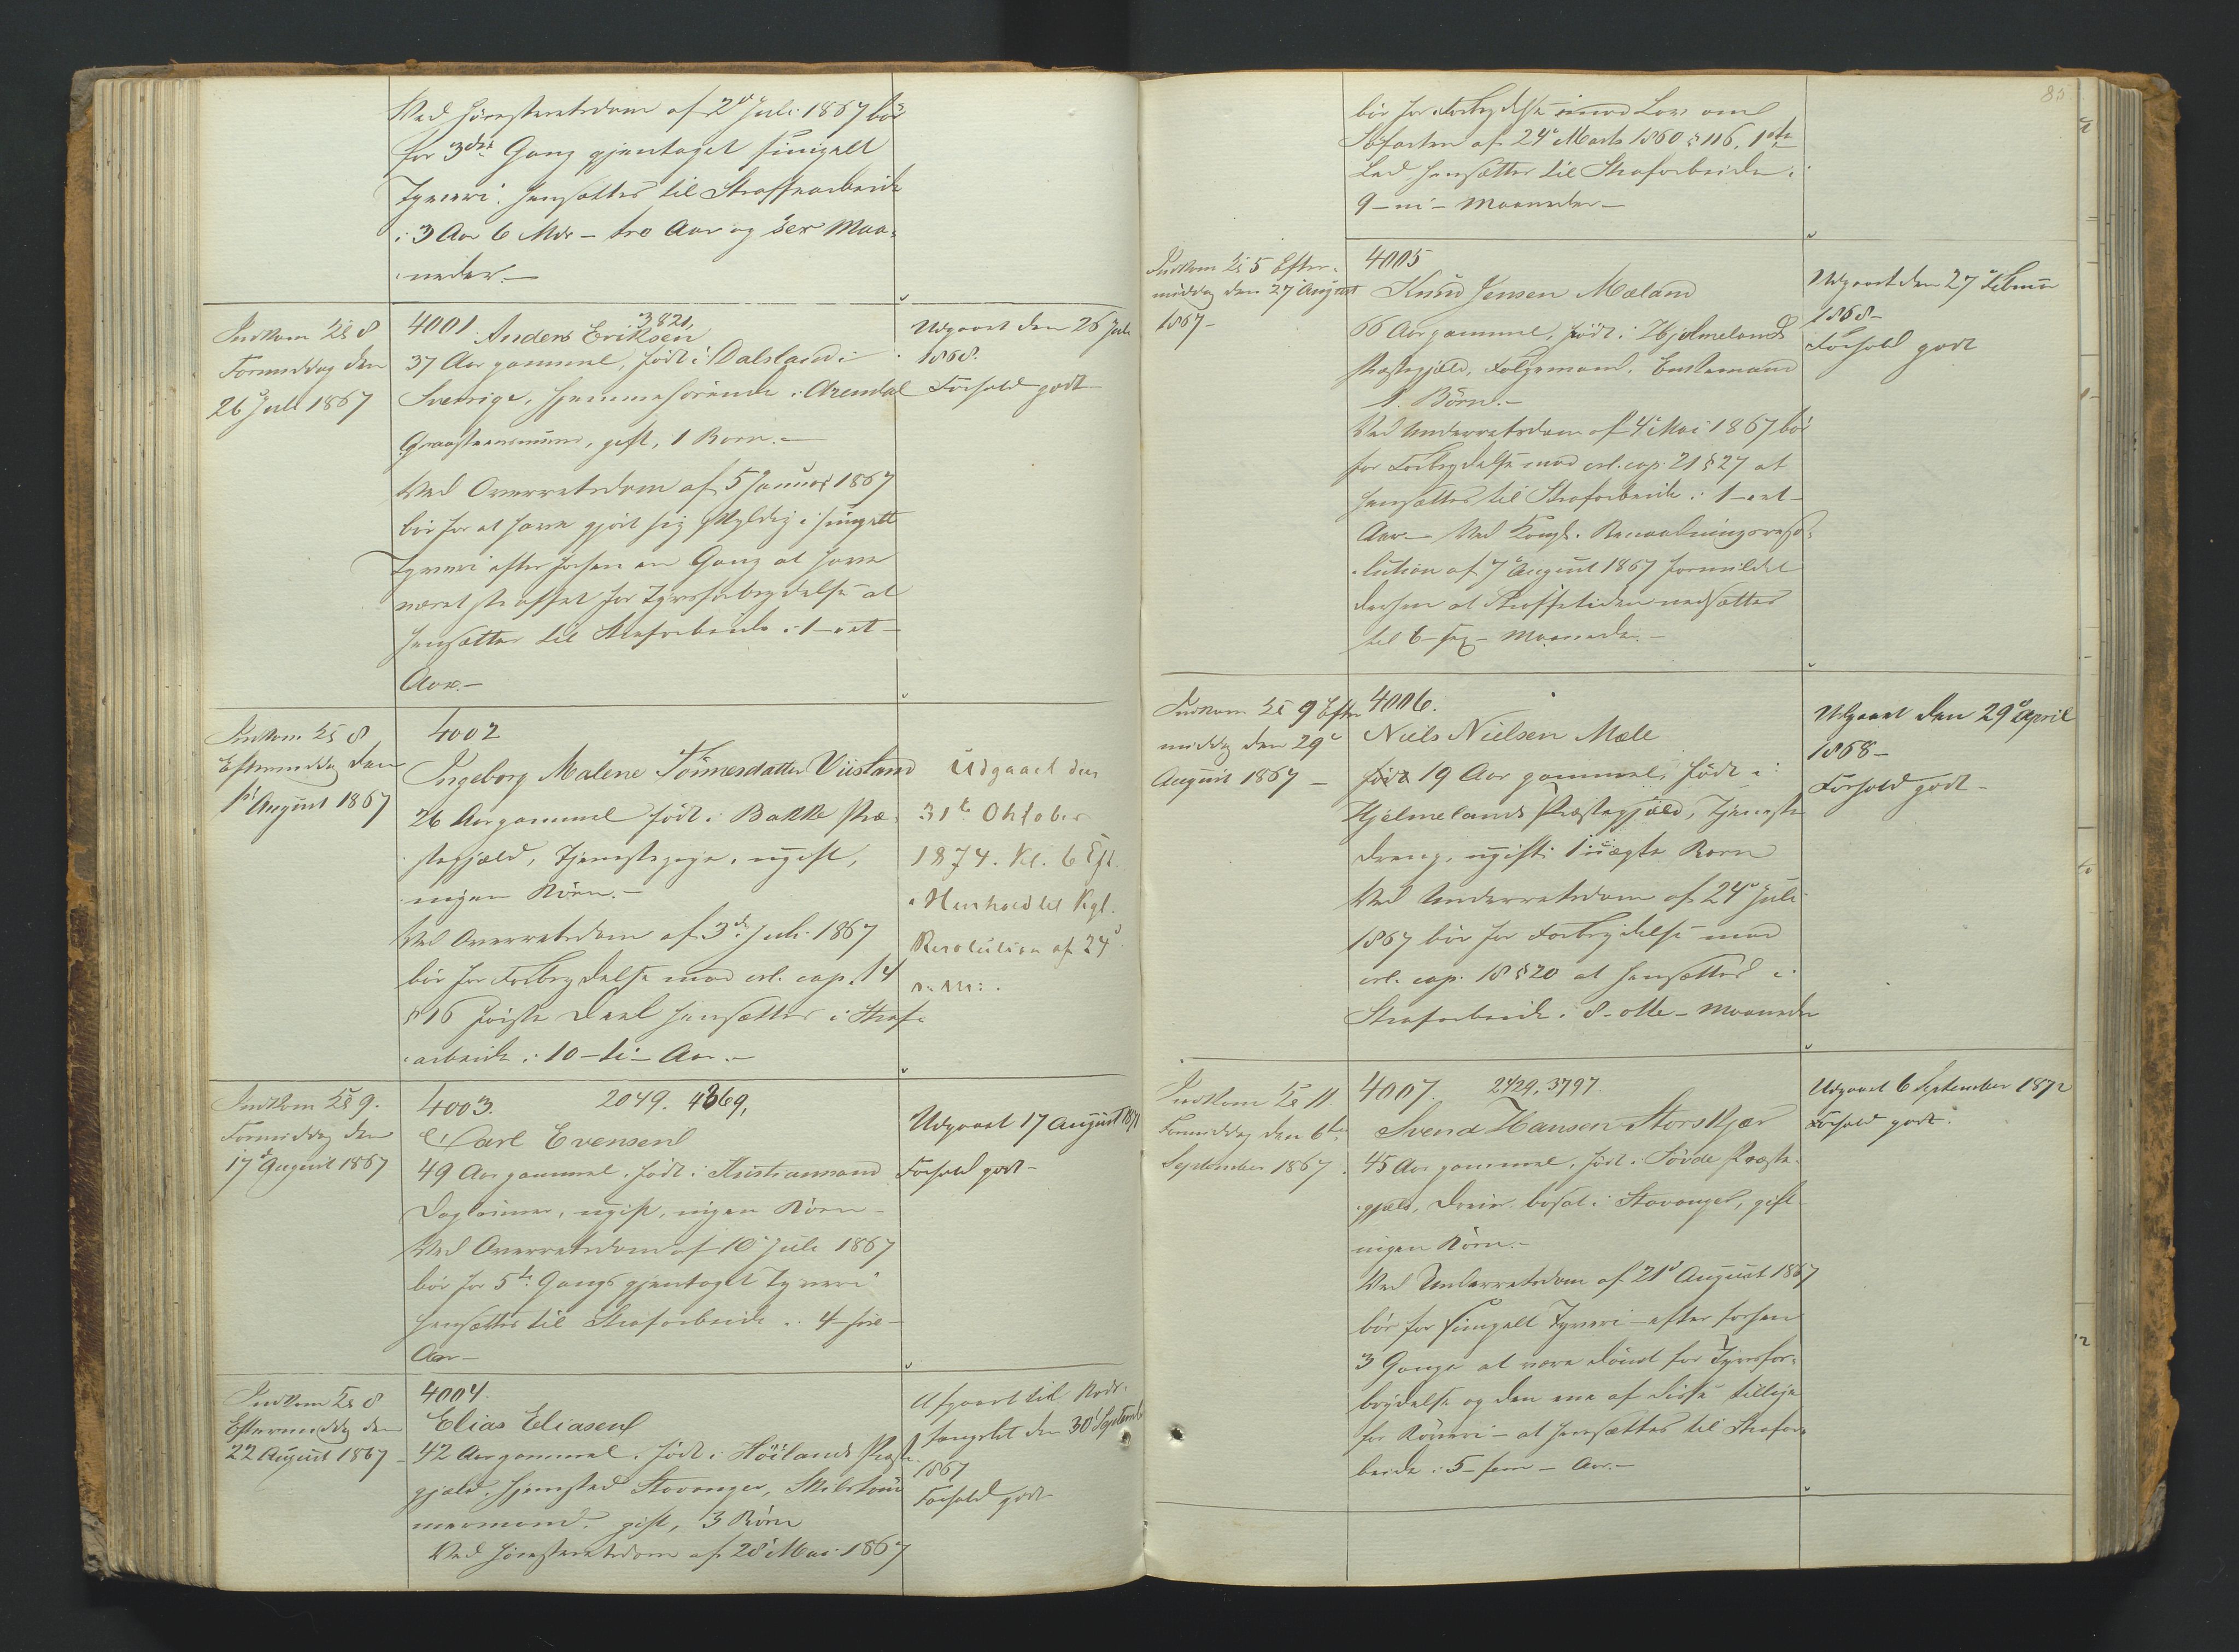 Ved Høiesteretsdom af 2den Juli 1867 bør
for 3die Gang gjentaget simpelt
Tyveri hensættes til Straffearbeide
i 3 Aar 6 Mdr – tre Aar og sex Maa-
neder.–
Indkom Kl 8
Formiddag den
26 Juli 1867
4001. 3821,
Anders Eriksen
37 Aar gammel, født i Dalsland i
Sverrige, hjemmehørende i Arendal
Graasteensmurer, gift, 1 Barn.–
Ved Overretsdom af 5 Januar 1867
bør for at have gjort sig skyldig i simpelt
Tyveri efter forhen en Gang at have
været straffet for Tyvsforbrydelse at
hensættes til Strafarbeide i 1–et–
Aar.–
Udgaaet den 26 Juli
1868.
Forhold godt
Indkom Kl 8
Eftermiddag den
1ste August 1867
4002
Ingeborg Malene Tønnesdatter Viisland
26 Aar gammel født i Bakke Præ-
stegjæld, Tjenestepige, ugift,
ingen Børn.–
Ved Overretsdom af 3die Juli 1867
bør for Forbrydelse mod crl. cap. 14
§ 16 første Deel hensættes i Straf-
arbeide i 10–ti– Aar.–
Udgaaet den
31te Oktober
1874. Kl. 6 Eft.
i Henhold til Kgl.
Resolution af 24de
s. M.
Indkom Kl 9.
Formiddag den
17de August 1867
4003. 2049. 4369,
Carl Evensen
49 Aar gammel, født i Kristiansand
Dagleier, ugift, ingen Børn –
Ved Overretsdom af 10 Juli 1867
bør for 5te Gangs gjentaget Tyveri
hensættes til Strafarbeide i 4–fire–
Aar–
Udgaaet 17 August 1871
Forhold godt–
Indkom Kl 8
Eftermiddag den
22 August 1867 –
4004.
Elias Eliasen
42 Aar gammel, født i Höilands Præste-
gjæld, hjemsted Stavanger, Skibstøm-
mermand, gift, 3 Børn
Ved Høiesteretsdom af 28 Mai 1867
Afgaaet til Bods-
fængslet den 30 September
1867
Forhold godt
83
bør for Forbrydelse imod Lov om
Søfarten af 24 Marts 1860 § 116, 1ste
Led hensættes til Strafarbeide i
9–ni– Maaneder–
Indkom Kl 5 Efter-
middag den 27 August
1867–
4005
Knud Jensen Mæland
66 Aar gammel, født i Hjelmelands
Præstegjæld, Følgemand, Enkemand
1. Børn.–
Ved Underretsdom af 4 Mai 1867 bør
for Forbrydelse mod crl. cap. 21 § 27 at
hensættes til Strafarbeide i 1–eet–
Aar– Ved Kongl. Benaadningsreso-
lution af 7 August 1867 formildet
derhen at Straffetiden nedsættes
til 6–sex– Maaneder.–
Udgaaet den 27 Februar
1868–
Forhold godt
Indkom Kl 9 Efter
middag den 29de
August 1867 –
4006.
Niels Nielsen Mæle
født 19 Aar gammel, født i
Hjelmelands Præstegjæld, Tjeneste-
dreng, ugift 1 uægte Barn
Ved Underretsdom af 24 Juli
1867 bør for Forbrydelse mod
crl. cap. 18 § 20 at hensættes i
Strafarbeide i 8–otte– Maaneder
Udgaaet den 29 April
1868–
Forhold godt–
Indkom Kl 11
Formiddag den 6te
September 1867.
4007. 2429, 3797
Svend Hansen Storskjær
45 Aar gammel, født i Søvde Præste-
gjæld, Dreier bosat i Stavanger, gift
ingen Børn.–
Ved Underretsdom af 21 August 1867
bør for simpelt Tyveri – efter forhen
3 Gange at være dømt for Tyvsfor-
brydelse og den ene af disse tillige
for Røveri – at hensættes til Strafar-
beide i 5–fem– Aar.–
Udgaaet 6 September 1872
Forhold godt.